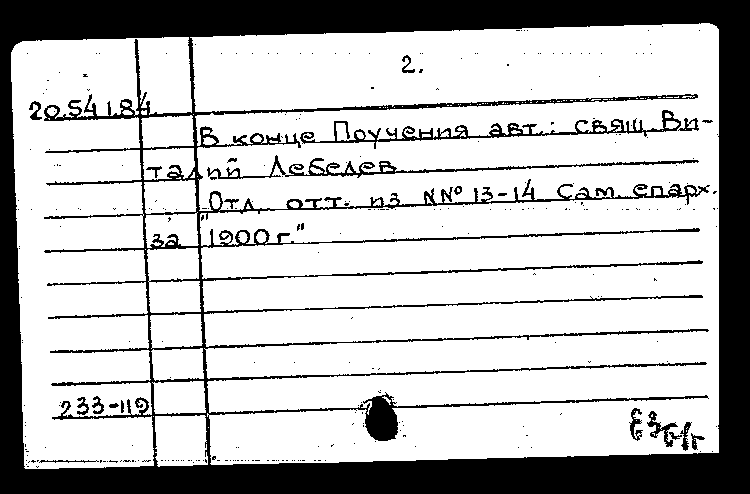 2.
20.541.84.
В конце Поучения авт.: свящ. Ви-
талий Лебедев
"Отд. отт. из NNº 13-14 Сам. епарх.
за 1900 г."
233-119